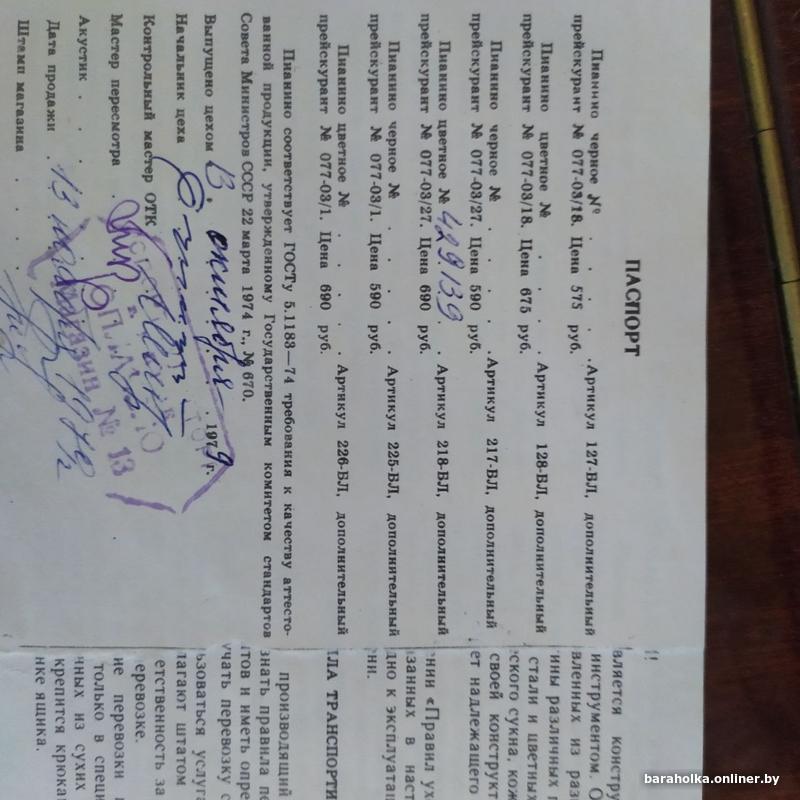 ПАСПОРТ
Пианино черное № . . . . . Артикул 127-БЛ, дополнительный
прейскурант № 077-03/18. Цена 575 руб.
Пианино цветное № . . . . . Артикул 128-БЛ, дополнительный
прейскурант № 077-03/18. Цена 675 руб.
Пианино черное № . . . . . Артикул 217-БЛ, дополнительный
прейскурант № 077-03/27. Цена 590 руб.
Пианино цветное № 429139 . . Артикул 218-БЛ, дополнительный
прейскурант № 077-03/27. Цена 690 руб.
Пианино черное № . . . . . Артикул 225-БЛ, дополнительный
прейскурант № 077-03/1. Цена 590 руб.
Пианино цветное № . . . . . Артикул 226-БЛ, дополнительный
прейскурант № 077-03/1. Цена 690 руб.
Пианино соответствует ГОСТу 5.1183—74 требования к качеству аттесто-
ванной продукции, утвержденному Государственным комитетом стандартов
Совета Министров СССР 22 марта 1974 г., № 670.
Выпущено цехом 13. октября . 1979 г.
Начальник цеха
Контрольный мастер ОТК
Мастер пересмотра .
Акустик . . .
Дата продажи . 13
Штамп магазина . . . .
магазин № 13
вляется констру
инструментом. О
вленных из раз
ины различных п
стали и цветных
ского сукна, кож
своей конструкт
ет надлежащего
нии «Правил ух
занных в наст
дно к эксплуатац
ни.
ЛА ТРАНСПОРТИ
производящий
знать правила по
тов и иметь опре
учать перевозку с
ьзоваться услуга
лагают штатом
етственность за
еревозке.
ие перевозки
только в специ
чных из сухих
крепится крюка
нке ящика.
baraholka.onliner.by